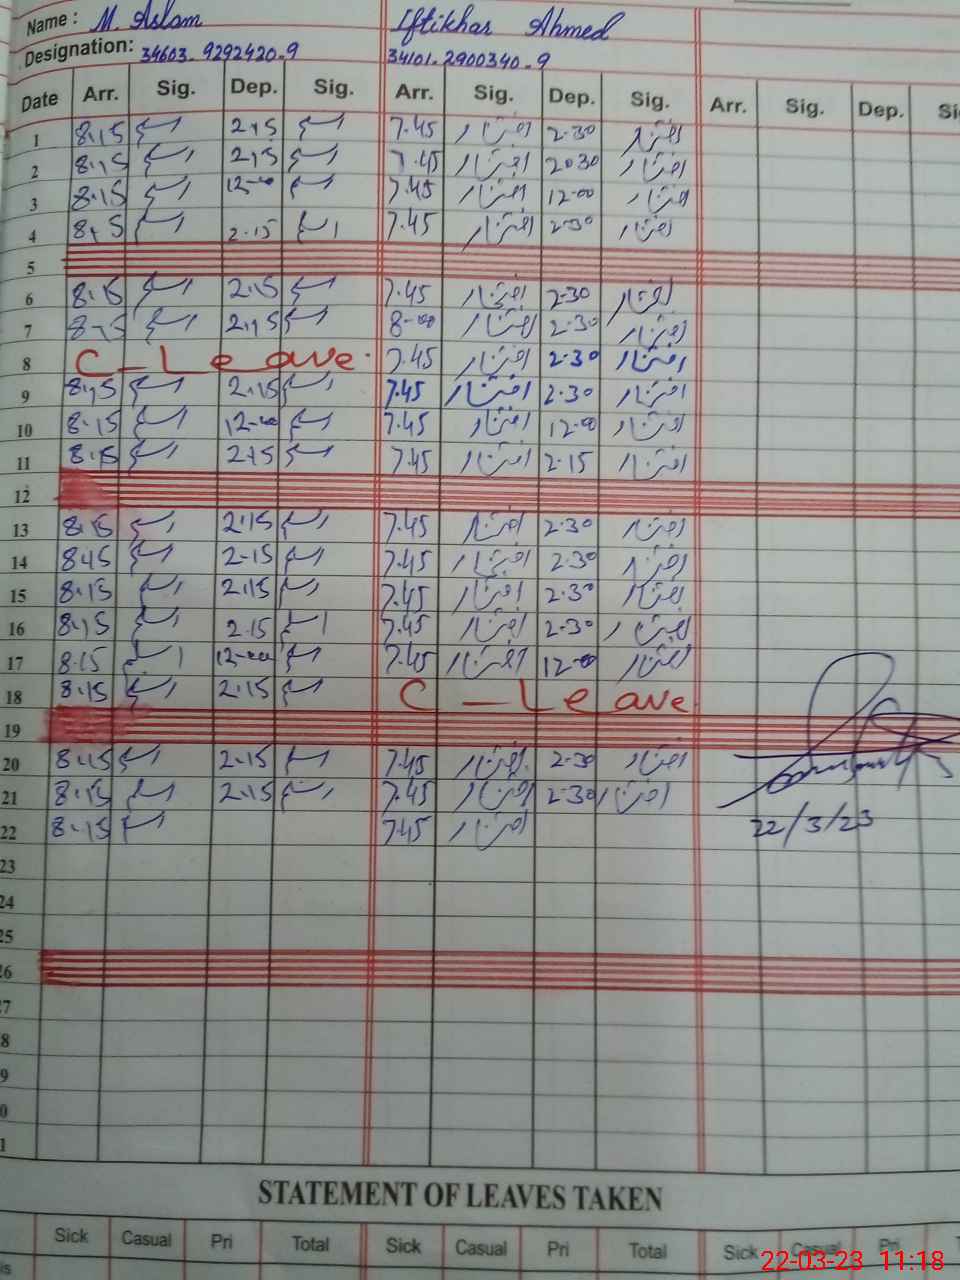 Name: M. Aslam Iftikhar Ahmed
Designation: 34603-9292420-9 34101-2900340-9
Date Arr. Sig. Dep. Sig. Arr. Sig. Dep. Sig. Arr. Sig. Dep.
1 8.15 2.15 7.45 افتخار 2.30 افتخار
2 8.15 2.15 7.45 افتخار 2030 افتخار
3 8.15 12-00 7.45 افتخار 12-00 افتخار
4 8.15 2.15 7.45 افتخار 2.30 افتخار
5
6 8.15 2.15 7.45 افتخار 2.30 افتخار
7 8.15 2.15 8-00 افتخار 2.30 افتخار
8 C-Leave 7.45 افتخار 2.30 افتخار
9 8.15 2.15 7.45 افتخار 2.30 افتخار
10 8.15 12-00 7.45 افتخار 12-00 افتخار
11 8.15 2.15 7.45 افتخار 2.15 افتخار
12
13 8.15 2.15 7.45 افتخار 2.30 افتخار
14 8.15 2-15 7.45 افتخار 2.30 افتخار
15 8.15 2.15 7.45 افتخار 2.30 افتخار
16 8.15 2.15 7.45 افتخار 2.30 افتخار
17 8.15 12-00 7.45 افتخار 12-00 افتخار
18 8.15 2.15 C-Leave
19
20 8.15 2.15 7.45 افتخار 2.30 افتخار
21 8.15 2.15 7.45 افتخار 2.30 افتخار
22 8.15 7.45 افتخار 22/3/23
23
24
25
26
27
8
9
0
1
STATEMENT OF LEAVES TAKEN
Sick Casual Pri Total Sick Casual Pri Total Sick Casual Pri
22-03-23 11:18